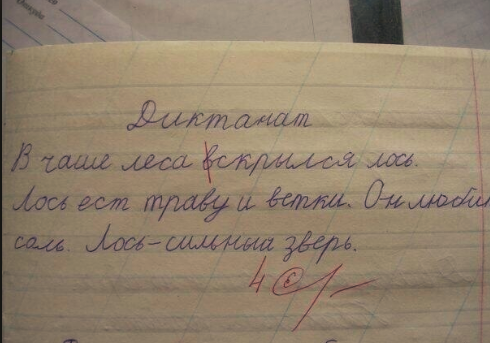 Диктанат
В чаше леса вскрылся лось.
Лось ест траву и ветки. Он любит
соль. Лось-сильныа зверь.
4 С/-